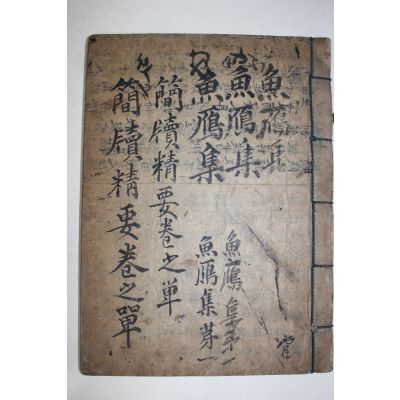 魚鴈集
魚鴈集
魚鴈集
魚鴈集第一
魚鴈集第一
簡牘精要卷之単
簡牘精要卷之單